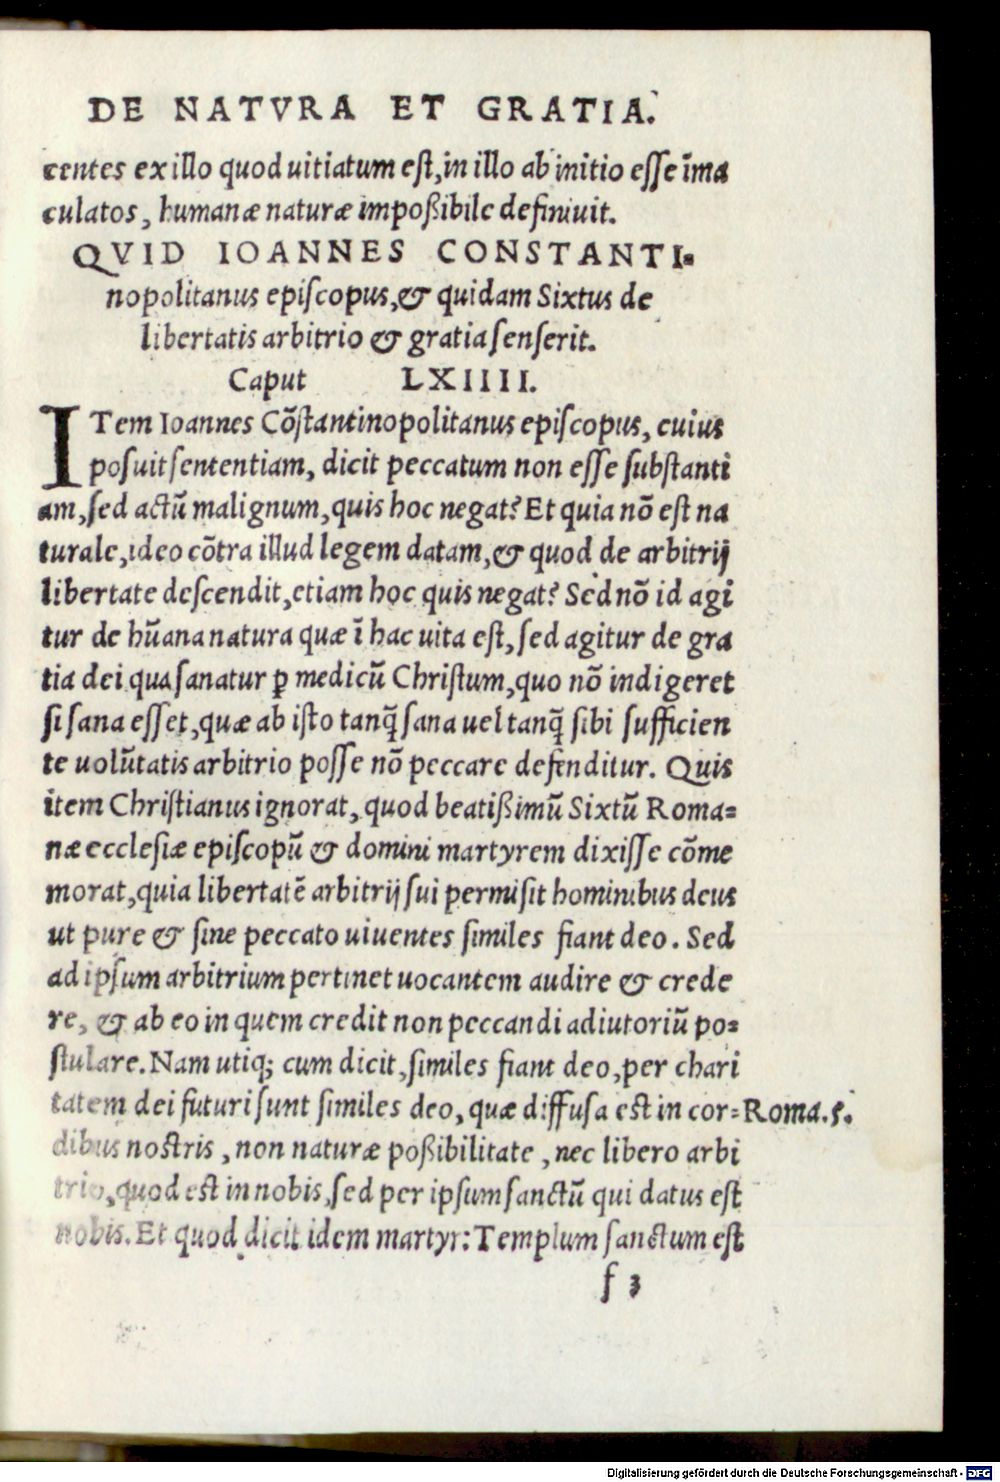 DE NATVRA ET GRATIA.
centes ex illo quod uitiatum est, in illo ab initio esse ĩma
culatos, humanæ naturæ impoßibile definiuit.
QVID IOANNES CONSTANTI-
nopolitanus episcopus, & quidam Sixtus de
libertatis arbitrio & gratia senserit.
Caput LXIIII.
ITem Ioannes Cõstantinopolitanus episcopus, cuius
posuit sententiam, dicit peccatum non esse substanti
am, sed actũ malignum, quis hoc negat? Et quia nõ est na
turale, ideo cõtra illud legem datam, & quod de arbitrij
libertate descendit, etiam hoc quis negat? Sed nõ id agi
tur de hũana natura quæ ĩ hac uita est, sed agitur de gra
tia dei qua sanatur ꝑ medicũ Christum, quo nõ indigeret
si sana esset, quæ ab isto tanq̃ sana uel tanq̃ sibi sufficien
te uolũtatis arbitrio posse nõ peccare defenditur. Quis
item Christianus ignorat, quod beatißimũ Sixtũ Roma-
næ ecclesiæ episcopũ & domini martyrem dixisse cõme
morat, quia libertatẽ arbitrij sui permisit hominibus deus
ut pure & sine peccato uiuentes similes fiant deo. Sed
ad ipsum arbitrium pertinet uocantem audire & crede
re, & ab eo in quem credit non peccandi adiutoriũ po-
stulare. Nam utiq; cum dicit, similes fiant deo, per chari
tatem dei futuri sunt similes deo, quæ diffusa est in cor- Roma.5.
dibus nostris, non naturæ poßibilitate, nec libero arbi
trio, quod est in nobis, sed per ipsum sanctũ qui datus est
nobis. Et quod dicit idem martyr: Templum sanctum est
f 3
Digitalisierung gefördert durch die Deutsche Forschungsgemeinschaft - DFG